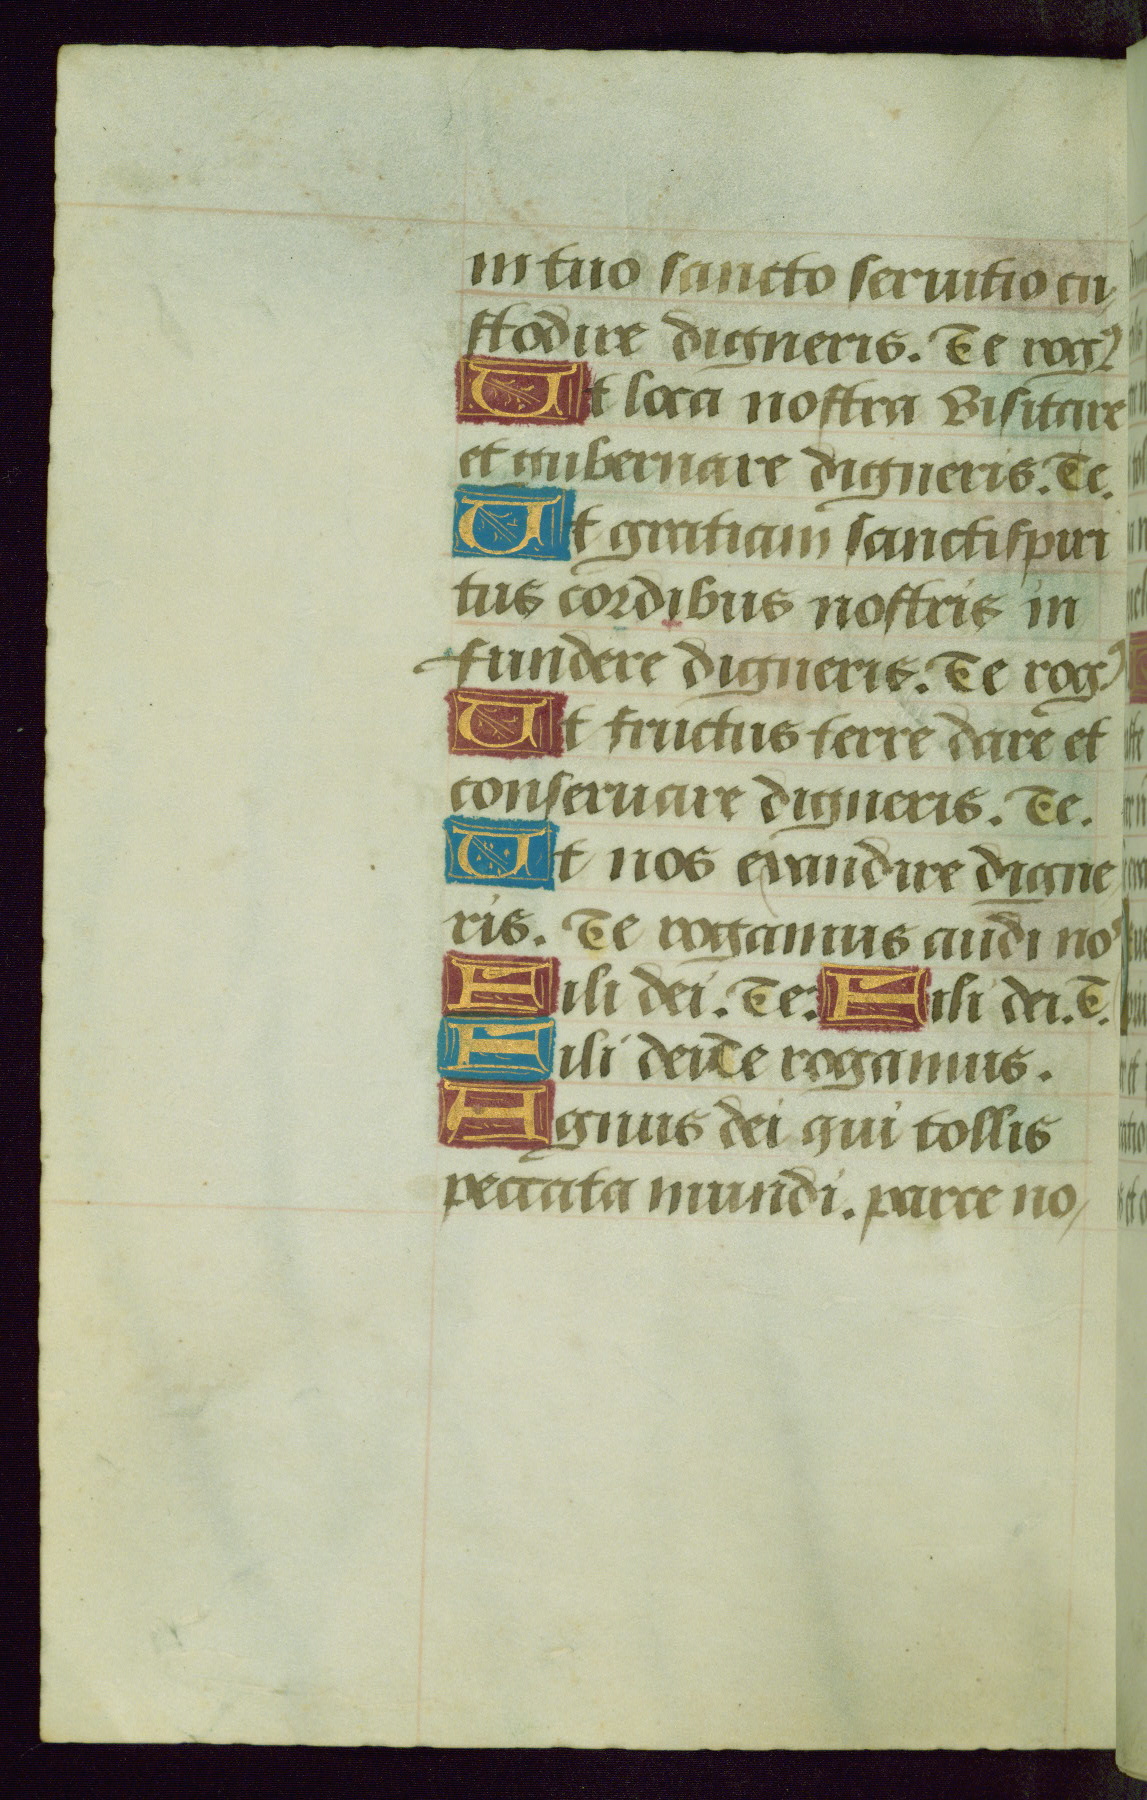 in tuo sancto seruitio cu
stodire digneris. Te rog
Ut loca nostra visitare
et gubernare digneris. Te.
Ut gratiam sancti spiri
tus cordibus nostris in
fundere digneris. Te rog
Ut fructus terre dare et
conseruare digneris. Te.
Ut nos exaudire digne
ris. Te rogamus audi no
Fili dei. Te. Fili dei. T.
Fili dei Te rogamus.
Agnus dei qui tollis
peccata mundi. parce no